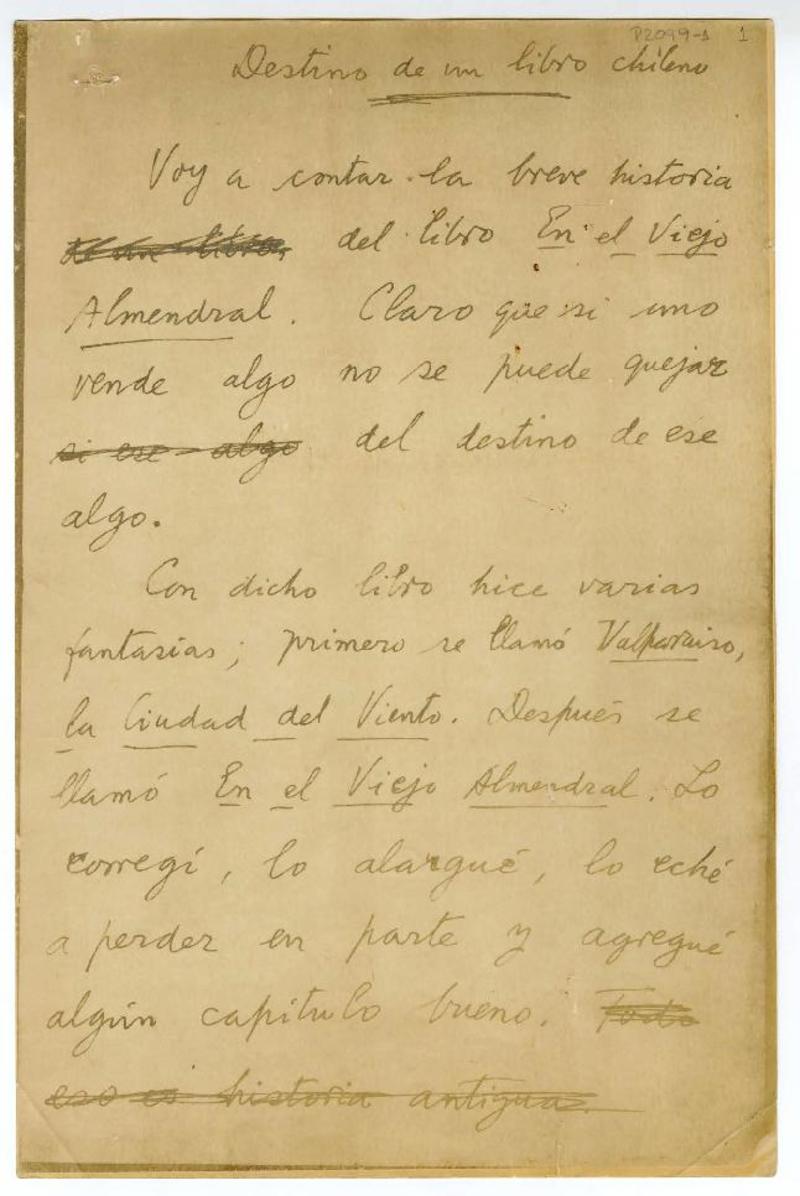 P2099-1 1
Destino de un libro chileno
Voy a contar la breve historia
de un libro, del libro En el Viejo
Almendral. Claro que si uno
vende algo no se puede quejar
si ese algo del destino de ese
algo.
Con dicho libro hice varias
fantasías; primero se llamó Valparaíso,
la Ciudad del Viento. Después se
llamó En el Viejo Almendral. Lo
corregí, lo alargué, lo eché
a perder en parte y agregué
algún capítulo bueno. Todo
eso es historia antigua.